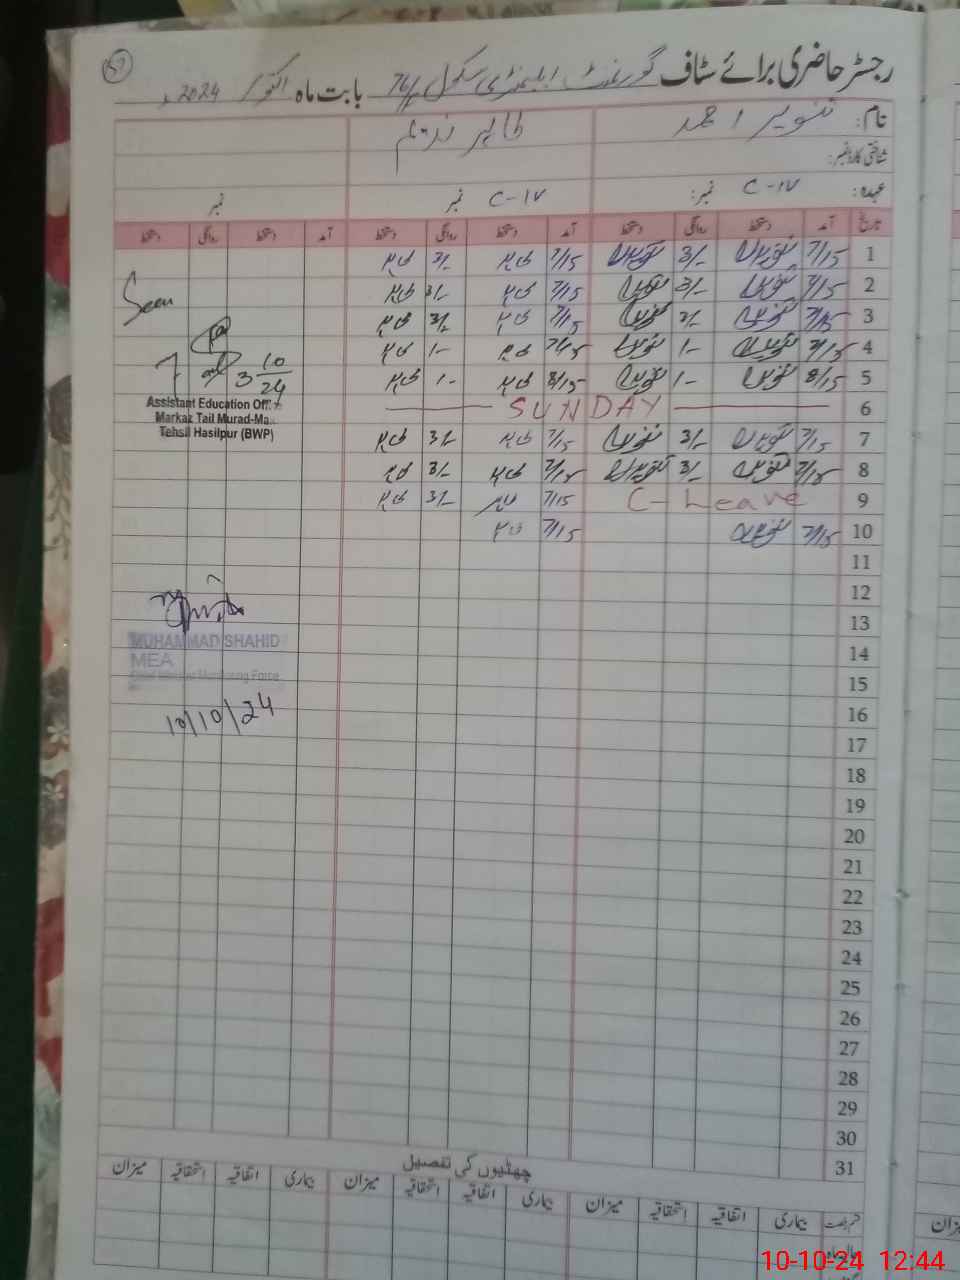 51
رجسٹر حاضری برائے سٹاف گورنمنٹ ایلیمنٹری سکول 76/ بابت ماہ اکتوبر 2024ء
نام: تنویر احمد طاہر ندیم
شناختی کارڈ نمبر:
عہدہ: C-IV نمبر: C-IV نمبر نمبر
تاریخ آمد دستخط روانگی دستخط آمد دستخط روانگی دستخط آمد دستخط روانگی دستخط
1 7/15 تنویر 3/- تنویر 7/15 طاہر 3/- طاہر
2 7/15 تنویر 3/- تنویر 7/15 طاہر 3/- طاہر
3 7/15 تنویر 3/- تنویر 7/15 طاہر 3/- طاہر
4 7/15 تنویر 1- تنویر 7/15 طاہر 1- طاہر
5 8/15 تنویر 1- تنویر 8/15 طاہر 1- طاہر
6 SUNDAY
7 7/15 تنویر 3/- تنویر 7/15 طاہر 3/- طاہر
8 7/15 تنویر 3/- تنویر 7/15 طاہر 3/- طاہر
9 C-Leave 7/15 طاہر 3/- طاہر
10 7/15 تنویر 7/15 طاہر
11
12
13
14
15
16
17
18
19
20
21
22
23
24
25
26
27
28
29
30
31
Seen
3 10/24
Assistant Education Off
Markaz Tail Murad-Ma
Tehsil Hasilpur (BWP)
MUHAMMAD SHAHID
MEA
Monitoring Force
10/10/24
چھٹیوں کی تفصیل
بیماری اتفاقیہ استحقاقیہ میزان بیماری اتفاقیہ استحقاقیہ میزان بیماری اتفاقیہ استحقاقیہ میزان
میزان
10-10-24 12:44